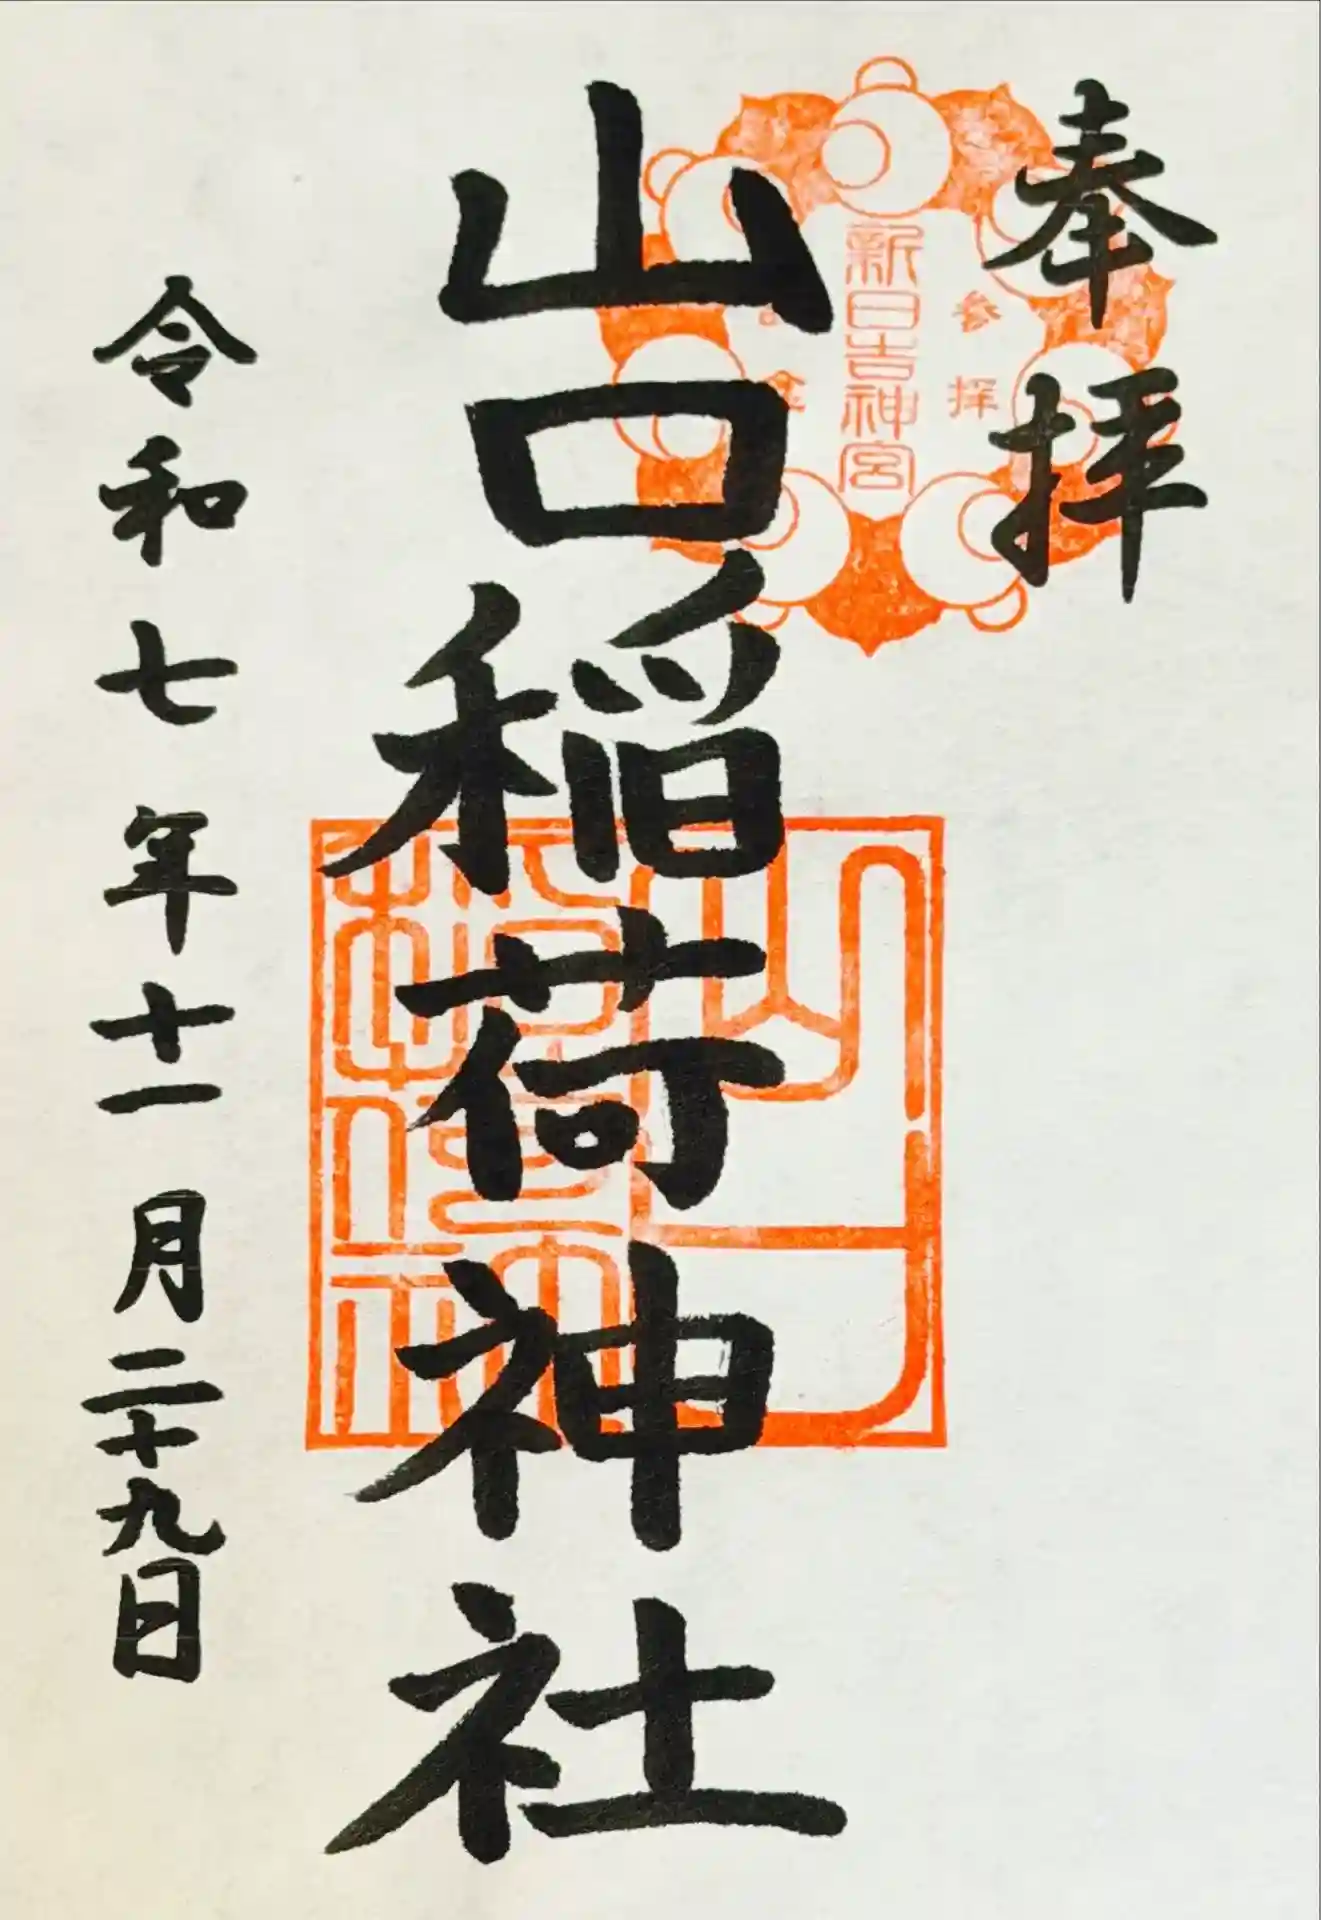 奉拝
参拝
新日吉神宮
山口稲荷神社
令和七年十一月二十九日